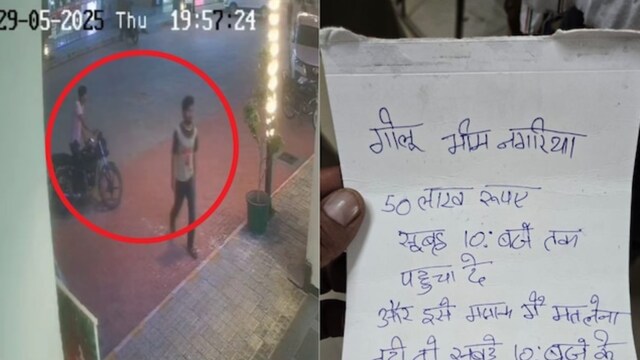 29-05-2025 Thu 19:57:24
गोलू मीम नगरिया
50 लाख रूपए
सूबह 10:बजे तक
पहुचा दे
और इसे मजाक में मत लेना
नही तो सूबह 10:बजे के